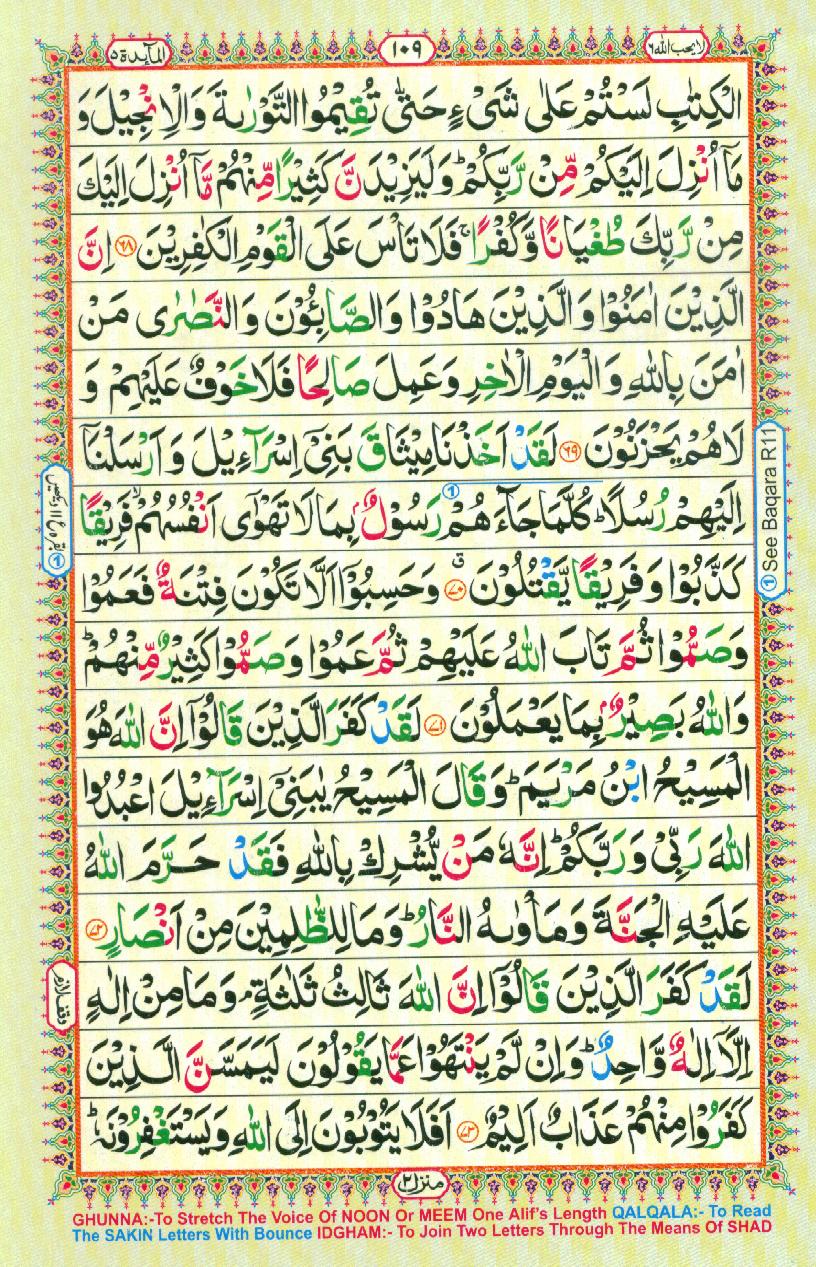 لا يحب الله ٦
١٠٩
المآيدة ٥
الْكِتٰبِ لَسْتُمْ عَلٰى شَیْءٍ حَتّٰى تُقِيْمُوا التَّوْرٰىةَ وَالْاِنْجِيْلَ وَ
مَاۤ اُنْزِلَ اِلَيْكُمْ مِّنْ رَّبِّكُمْ ؕ وَلَيَزِيْدَنَّ كَثِيْرًا مِّنْهُمْ مَّاۤ اُنْزِلَ اِلَيْكَ
مِنْ رَّبِّكَ طُغْيَانًا وَّكُفْرًا ۚ فَلَا تَاْسَ عَلَى الْقَوْمِ الْكٰفِرِيْنَ ٦٨ اِنَّ
الَّذِيْنَ اٰمَنُوْا وَالَّذِيْنَ هَادُوْا وَالصَّابِئُوْنَ وَالنَّصٰرٰى مَنْ
اٰمَنَ بِاللّٰهِ وَالْيَوْمِ الْاٰخِرِ وَعَمِلَ صَالِحًا فَلَا خَوْفٌ عَلَيْهِمْ وَ
لَا هُمْ يَحْزَنُوْنَ ٦٩ لَقَدْ اَخَذْنَا مِيْثَاقَ بَنِیْۤ اِسْرَآءِيْلَ وَاَرْسَلْنَاۤ
اِلَيْهِمْ رُسُلًا ؕ كُلَّمَا جَآءَهُمْ رَسُوْلٌۢ بِمَا لَا تَهْوٰۤى اَنْفُسُهُمْ ۙ فَرِيْقًا
كَذَّبُوْا وَفَرِيْقًا يَّقْتُلُوْنَ ٧٠ ۗ وَحَسِبُوْۤا اَلَّا تَكُوْنَ فِتْنَةٌ فَعَمُوْا
وَصَمُّوْا ثُمَّ تَابَ اللّٰهُ عَلَيْهِمْ ثُمَّ عَمُوْا وَصَمُّوْا كَثِيْرٌ مِّنْهُمْ ؕ
وَاللّٰهُ بَصِيْرٌۢ بِمَا يَعْمَلُوْنَ ٧١ لَقَدْ كَفَرَ الَّذِيْنَ قَالُوْۤا اِنَّ اللّٰهَ هُوَ
الْمَسِيْحُ ابْنُ مَرْيَمَ ؕ وَقَالَ الْمَسِيْحُ يٰبَنِیْۤ اِسْرَآءِيْلَ اعْبُدُوا
اللّٰهَ رَبِّیْ وَرَبَّكُمْ ؕ اِنَّهٗ مَنْ يُّشْرِكْ بِاللّٰهِ فَقَدْ حَرَّمَ اللّٰهُ
عَلَيْهِ الْجَنَّةَ وَمَاْوٰىهُ النَّارُ ؕ وَمَا لِلظّٰلِمِيْنَ مِنْ اَنْصَارٍ ٧٢
لَقَدْ كَفَرَ الَّذِيْنَ قَالُوْۤا اِنَّ اللّٰهَ ثَالِثُ ثَلٰثَةٍ ۘ وَمَا مِنْ اِلٰهٍ
اِلَّاۤ اِلٰهٌ وَّاحِدٌ ؕ وَاِنْ لَّمْ يَنْتَهُوْا عَمَّا يَقُوْلُوْنَ لَيَمَسَّنَّ الَّذِيْنَ
كَفَرُوْا مِنْهُمْ عَذَابٌ اَلِيْمٌ ٧٣ اَفَلَا يَتُوْبُوْنَ اِلَى اللّٰهِ وَيَسْتَغْفِرُوْنَهٗ ؕ
① See Baqara R11
① بقره ع ١١ ديكھيں
وقف لازم
منزل ٢
GHUNNA:-To Stretch The Voice Of NOON Or MEEM One Alif's Length QALQALA:- To Read
The SAKIN Letters With Bounce IDGHAM:- To Join Two Letters Through The Means Of SHAD